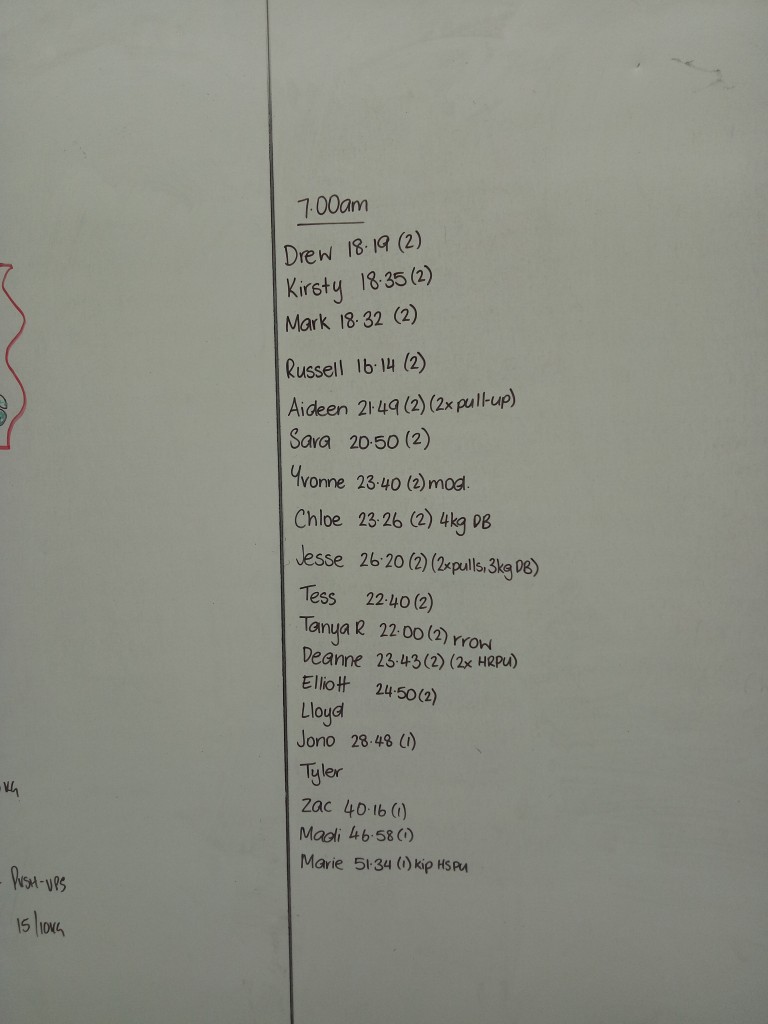 7.00am
Drew 18.19 (2)
Kirsty 18.35 (2)
Mark 18.32 (2)
Russell 16.14 (2)
Aideen 21.49 (2) (2x pull-up)
Sara 20.50 (2)
Yvonne 23.40 (2) mod.
Chloe 23.26 (2) 4kg DB
Jesse 26.20 (2) (2xpulls, 3kg DB)
Tess 22.40 (2)
Tanya R 22.00 (2) rrow
Deanne 23.43 (2) (2x HRPU)
Elliott 24.50 (2)
Lloyd
Jono 28.48 (1)
Tyler
Zac 40.16 (1)
Madi 46.58 (1)
Marie 51.34 (1) Kip HSPU
KG
PUSH-UPS
15/10KG